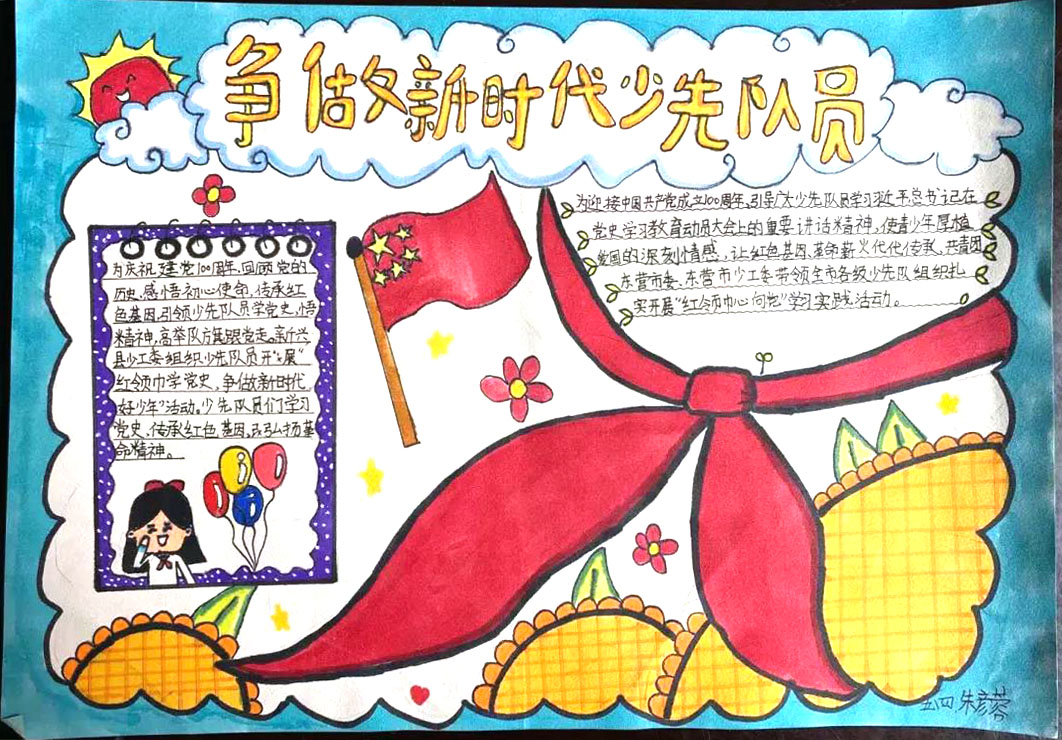 争做新时代少先队员
为庆祝建党100周年、回顾党的
历史、感悟初心使命、传承红
色基因,引领少先队员学党史,悟
精神,高举队旗跟党走。新兴
县少工委组织少先队员开展“
红领巾学党史,争做新时代
好少年”活动。少先队员们学习
党史、传承红色基因、弘扬革
命精神。
为迎接中国共产党成立100周年,引导广大少先队员学习习近平总书记在
党史学习教育动员大会上的重要讲话精神,使青少年厚植
爱国的深刻情感,让红色基因、革命薪火代代传承,共青团
东营市委、东营市少工委带领全市各级少先队组织扎
实开展“红领巾心向党”学习实践活动。
五四.朱彦蓉